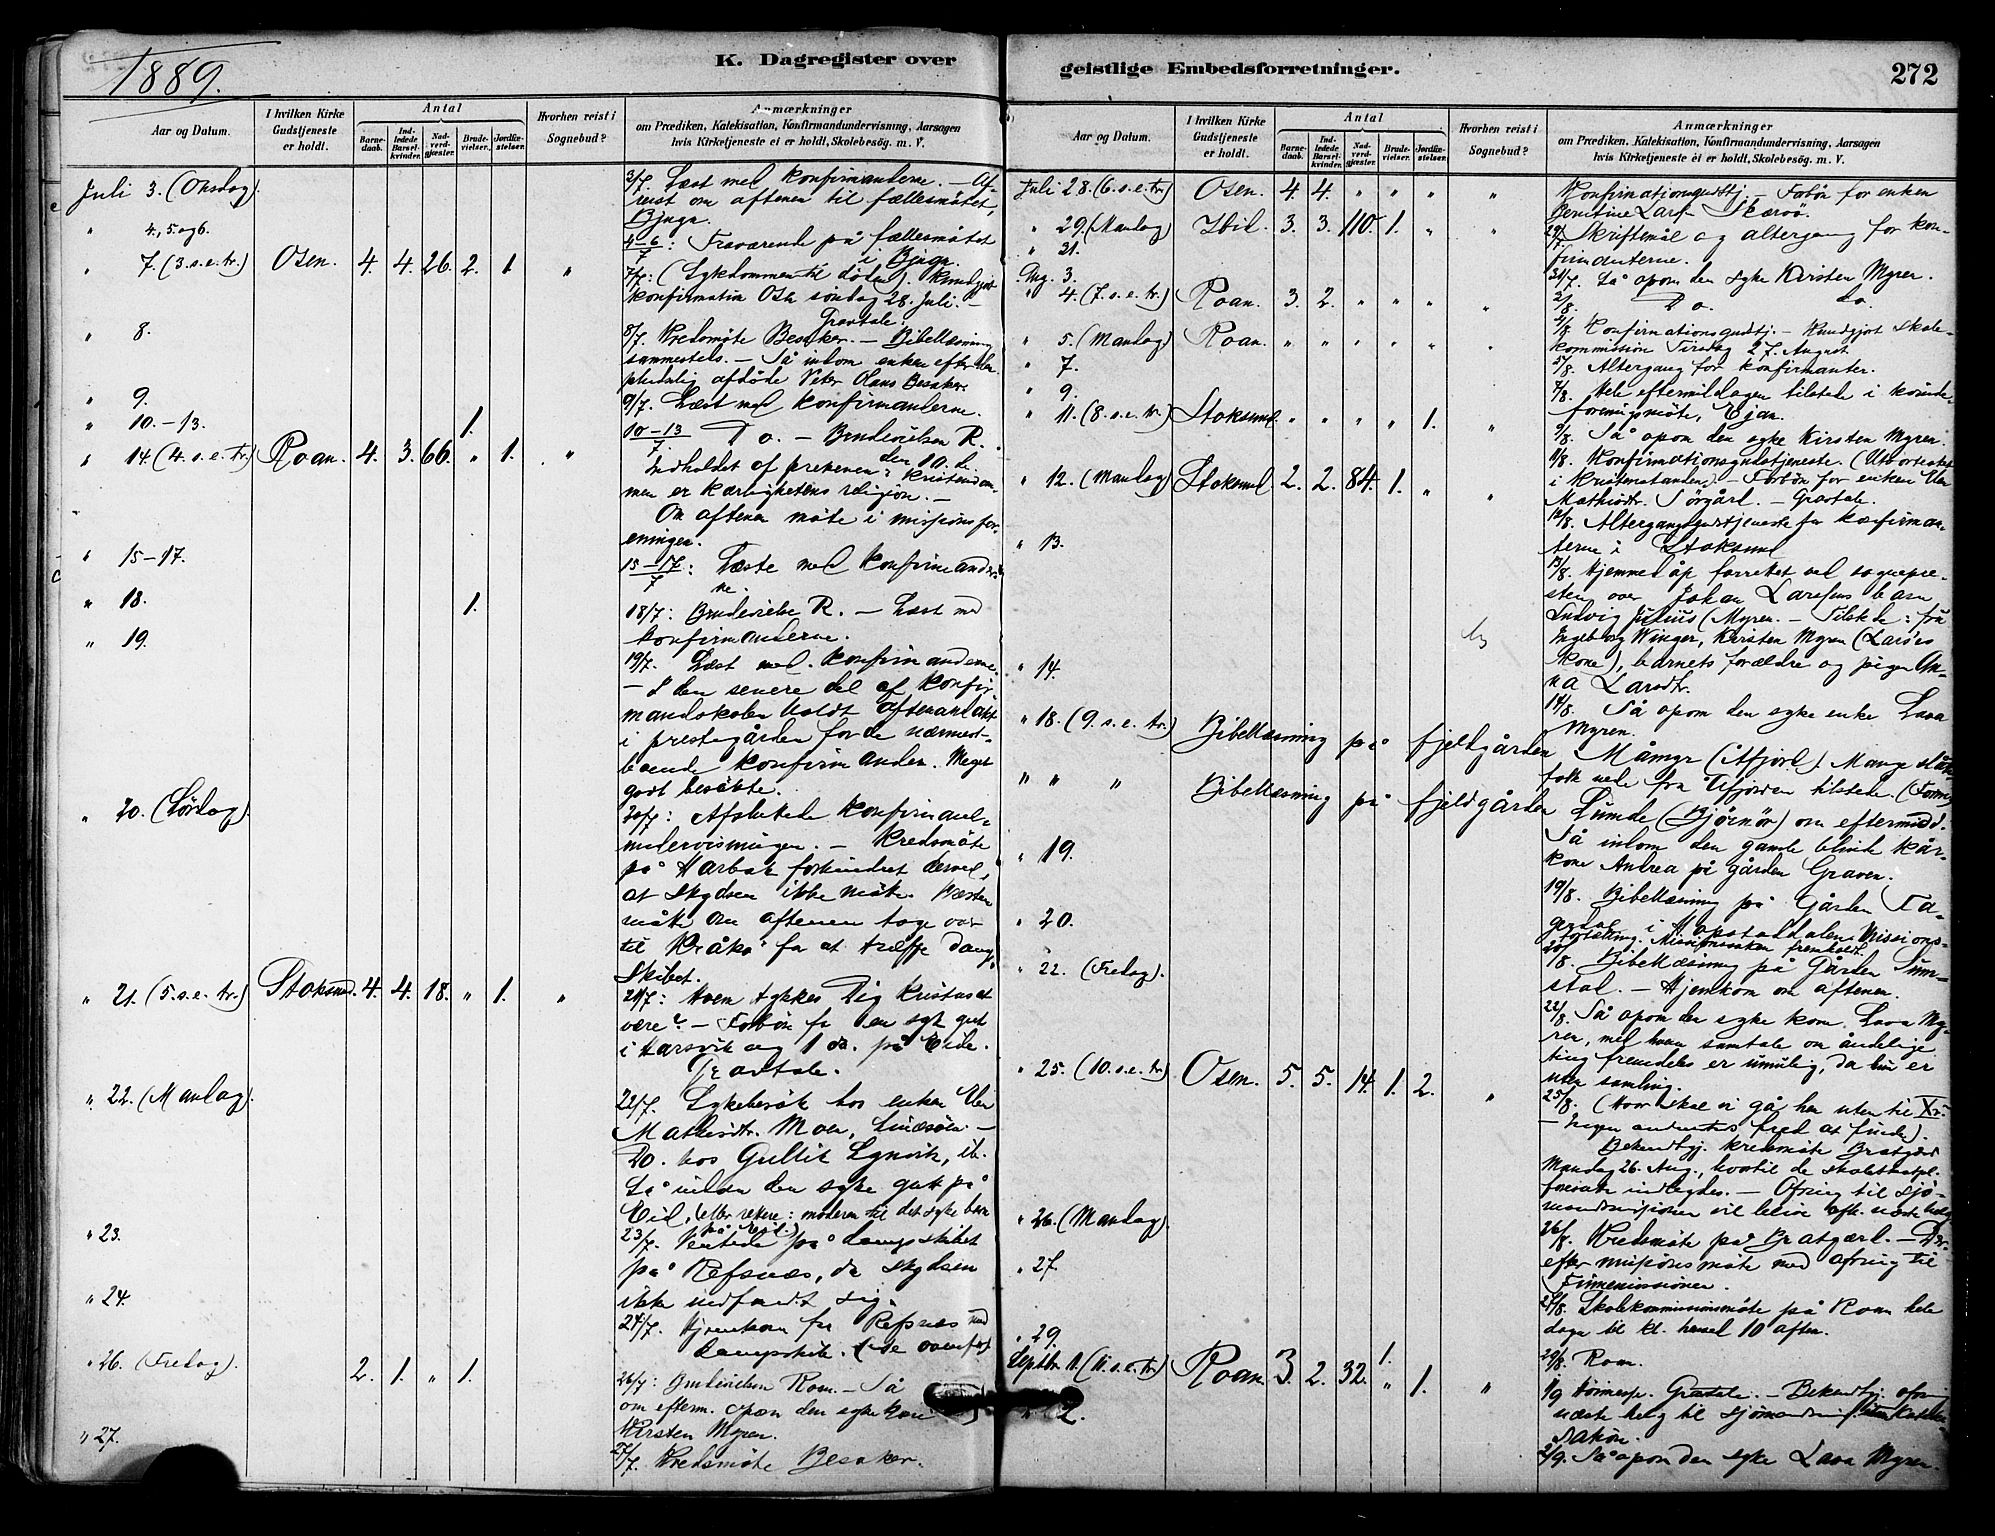 1889.
K. Dagregister over
Aar og Datum.
I hvilken Kirke Gudstjeneste er holdt.
Antal
Barnedaab. Indledede Barselkvinder. Nadverdgjæster. Brudevielser. Jordfæstelser.
Hvorhen reist i Sognebud?
Anmærkninger
om Prædiken, Katekisation, Konfirmandundervisning, Aarsagen
hvis Kirketjeneste ei er holdt, Skolebesög. m. V.
Juli 3. (Onsdag).
3/7. Læst med konfirmanderne. — Af-
reist om aftenen til fællesmötet,
Bjugn.
" 4, 5 og 6.
4–6/7 : Fraværende på fællesmötet
i Bjugn.
" 7. (3. s. e. tr.) Osen. 4. 4. 26. 2. 1. "
7/7: (Sykdommen til döden). Kundgjort
konfirmation Osen söndag 28. Juli. —
Gravtale.
" 8.
8/7. Kredsmöte Besaker. — Bibellæsning
sammesteds. — Så indom enken efter den
pludselig afdöde Peter Hans Besaker.
" 9.
9/7. Læst med konfirmanderne.
" 10. – 13. 1.
10–13/7. Do. — Brudevielsen R.
den 10. de.
" 14. (4. s. e. tr.) Roan. 4. 3. 66. " 1. "
Indholdet af prekenen: kristendom-
men er kærlighetens religion. —
Om aftenen möte i misjonsfor-
eningen.
" 15 – 17.
15–17/7 : Læste med konfirmander-
ne.
" 18. 1.
18/7: Brudevielse R. — Læst med
konfirmanderne.
" 19.
19/7. Læst med konfirmanderne.
— I den senere del af konfir-
mandskolen holdt aftenandakt
i prestegården for de nærmest-
boende konfirmander. Meget
godt besökte.
" 20. (Lördag).
20/7: Afsluttede konfirmand-
undervisningen. — Kredsmöte
på Harbak forhindret derved,
at skydsen ikke mötte. Presten
måtte om aftenen tage over
til Kråkö for at træffe damp-
skibet.
" 21. (5. s. e. tr.) Stoksund. 4. 4. 18. " 1. "
21/7: Hvem tykkes Dig Kristus at
være? — Forbön for en syk gut
i Harsvik og 1 do. på Eide.
Gravtale.
" 22. (Mandag).
22/7. Sykebesök hos enken Elen
Mathisdtr. Moen, Linesöen —
Do. hos Gullik Lynvik, ib.
Så indom den syke gut på
Eid, (eller rettere: moderen til det syke barn
på Eid.)
" 23.
23/7. Ventede på dampskibet
på Refsnæs, da skydsen
ikke indfandt sig.
" 24.
24/7. Hjemkom fra Refsnæs med
dampskib. (se ovenfor)
" 26. (Fredag). 2. 1. " 1.
26/7: Brudevielsen Roan. — Så
om efterm. opom den syke kone
Kirsten Myren.
" 27.
27/7. Kredsmöte Besaker.
geistlige Embedsforretninger.
272
Aar og Datum.
I hvilken Kirke Gudstjeneste er holdt.
Antal
Barnedaab. Indledede Barselkvinder. Nadverdgjæster. Brudevielser. Jordfæstelser.
Hvorhen reist i Sognebud?
Anmærkninger
om Prædiken, Katekisation, Konfirmandundervisning, Aarsagen
hvis Kirketjeneste ei er holdt, Skolebesög. m. V.
Juli 28. (6. s. e. tr.) Osen. 4. 4. " " " "
Konfirmationsgudstj. — Forbön for enken
" 29. (Mandag) Ibid. 3. 3. 110. 1. " "
29/7 Skriftemål og altergang for kon-
firmanterne.
" 31.
31/7. Så opom den syke Kirsten Myren.
Aug. 3.
Do. do.
" 4. (7. s. e. tr.) Roan. 3. 2. " " " "
4/8 Konfirmationsgudstj. — Kundgjort skole-
kommission Tirsdag 27. August.
" 5. (Mandag) Roan. " " " " " "
5/8. Altergang for konfirmanter.
" 7.
7/8. Hele eftermiddagen tilstede i kvinde-
foreningsmöte, Ejan.
" 9.
9/8. Så opom den syke Kirsten Myren.
" 11. (8. s. e. tr.) Stoksund. " " " " 1. "
11/8. Konfirmationsgudstjeneste.
— Forbön for enken Elen
Mathisdtr. Sörgård. — Gravtale.
" 12. (Mandag) Stoksund 2. 2. 84. 1. " "
12/8. Altergangsgudstjeneste for konfirman-
terne i Stoksund
" 13.
13/8. Hjemmedåp forrettet ved sognepre-
sten over Johan Larsens barn
Ludvig Julius (Myren. — Tilstede: fru
Ingeborg Winger, Kirsten Myren (Larses
kone), barnets forældre og pigen An-
na Larsdtr.
" 14.
14/8. Så opom den syke enke Lava
Myren.
" 18. (9. s. e. tr.) Bibellæsning på fjeldgården Måmyr (Åfjord). Mange
folk ned fra Åfjorden tilstede.
" " " Bibellæsning på fjeldgården Sumde (Bjørnör) om eftermidd.
Så indom den gamle blinde kår-
kone Andrea på gården Graven.
" 19.
19/8. Bibellæsning på Gården
i Hopstaddalen. Missions-
fortælling. Missionssaken fremholdt.
" 20.
20/8. Bibellæsning på Gården Sum-
stad. — Hjemkom om aftenen.
" 22. (Fredag).
22/8. Så opom den syke kone Lava My-
ren, med hvem samtale om åndelige
ting fremdeles er umulig, da hun er
uten samling.
" 25. (10. s. e. tr.) Osen. 5. 5. 14. 1. 2. "
25/8. (Hvor skal vi gå hen uten til Xs.
— Ingen andensteds fred at finde).
Bekendtgj. kredsmöte Bratgjærd
Mandag 26. Aug., hvortil de
indbydes. — Ofring til sjö-
mandsmisjonen vil blive
" 26. (Mandag).
26/8. Kredsmöte på Bratgærd. — Der-
efter misjonsmöte med ofring til
Finnemissionen.
" 27.
27/8. Skolekommissionsmöte på Roan hele
dagen til kl. henved 10 aften.
" 29. 1.
29/8. Roan.
Septbr. 1. (11. s. e. tr.) Roan. 3. 2. 32. " 1. "
1/9 Gravtale. — Bekendtgj. ofring
næste helg til sjömandsmis.
" 2.
2/9. Så opom den syke Lava Myren.